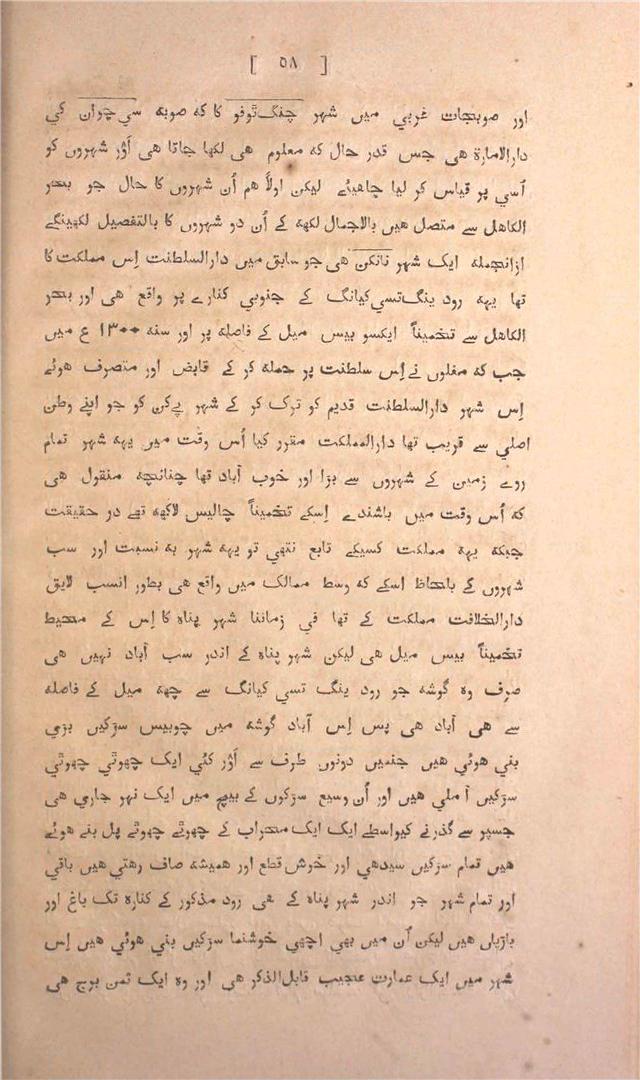 [ ٥٨ ]
اور صوبجات غربي میں شہر چنگ‌ٹوفو کا کہ صوبہ سي‌چوان کي
دارالامارۃ هی جس قدر حال کہ معلوم هی لکھا جاتا هی اَوْر شہروں کو
اُسي پر قیاس کر لیا چاهیئے لیکن اولاً هم اُن شہروں کا حال جو بحر
الکاهل سے متصل هیں بالاجمال لکھہ کے اُن دو شہروں کا بالتفصیل لکھینگے
ازانجملہ ایک شہر نانکن هی جو سابق میں دارالسلطنت اِس مملکت کا
تھا یہہ رود ینگ‌تسي‌کیانگ کے جنوبي کنارے پر واقع هی اور بحر
الکاهل سے تخمیناً ایکسو بیس میل کے فاصلہ پر اور سنہ ١٣٠٠ ع میں
جب کہ مغلوں نے اِس سلطنت پر حملہ کر کے قابض اور متصرف هوئے
اِس شہر دارالسلطنت قدیم کو ترک کر کے شہر پےکن کو جو اپنے وطن
اصلي سے قریب تھا دارالمملکت مقرر کیا اُس وقت میں یہہ شہر تمام
روے زمین کے شہروں سے بڑا اور خوب آباد تھا چنانچہ منقول هی
کہ اُس وقت میں باشندے اِسکے تخمیناً چالیس لاکھہ تھے در حقیقت
جبکہ یہہ مملکت کسیکے تابع نتھي تو یہہ شہر بہ نسبت اور سب
شہروں کے بلحاظ اسکے کہ وسط ممالک میں واقع هی بطور انسب لایق
دارالخلافت مملکت کے تھا في زماننا شہر پناہ کا اِس کے محیط
تخمیناً بیس میل هی لیکن شہر پناہ کے اندر سب آباد نہیں هی
صرف وہ گوشہ جو رود ینگ تسي کیانگ سے چھہ میل کے فاصلہ
سے هی آباد هی پس اِس آباد گوشہ میں چوبیس سڑکیں بڑي
بني هوئي هیں جنمیں دونوں طرف سے اَوْر کئي ایک چھوٹي چھوٹي
سڑکیں آ ملي هیں اور اُن وسیع سڑکوں کے بیچ میں ایک نہر جاري هی
جسپر سے گذرنے کیواسطے ایک ایک محراب کے چھوٹے چھوٹے پل بنے هوئے
هیں تمام سڑکیں سیدهي اور خوش قطع اور همیشہ صاف رهتي هیں باقي
اور تمام شہر جو اندر شہر پناہ کے هی رود مذکور کے کنارہ تک باغ اور
باڑیاں هیں لیکن اُن میں بهي اچھي خوشنما سڑکیں بني هوئي هیں اِس
شہر میں ایک عمارت عجیب قابل‌الذکر هی اور وہ ایک ثمن برج هی